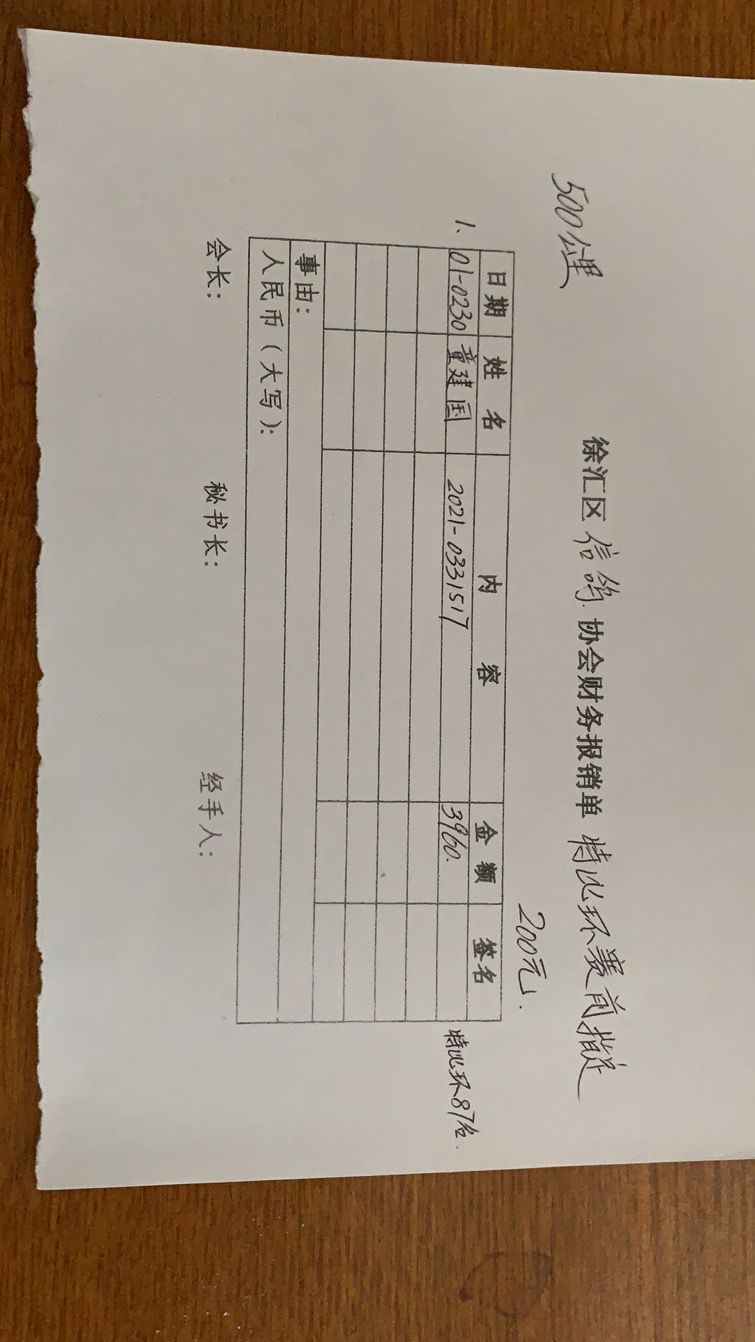 500公里
徐汇区信鸽协会财务报销单 特比环赛前指定
200元.
日期 姓名 内容 金额 签名
1、01-0230 童建国 2021-0331517 3960. 特比环87名.
事由：
人民币（大写）：
会长： 秘书长： 经手人：